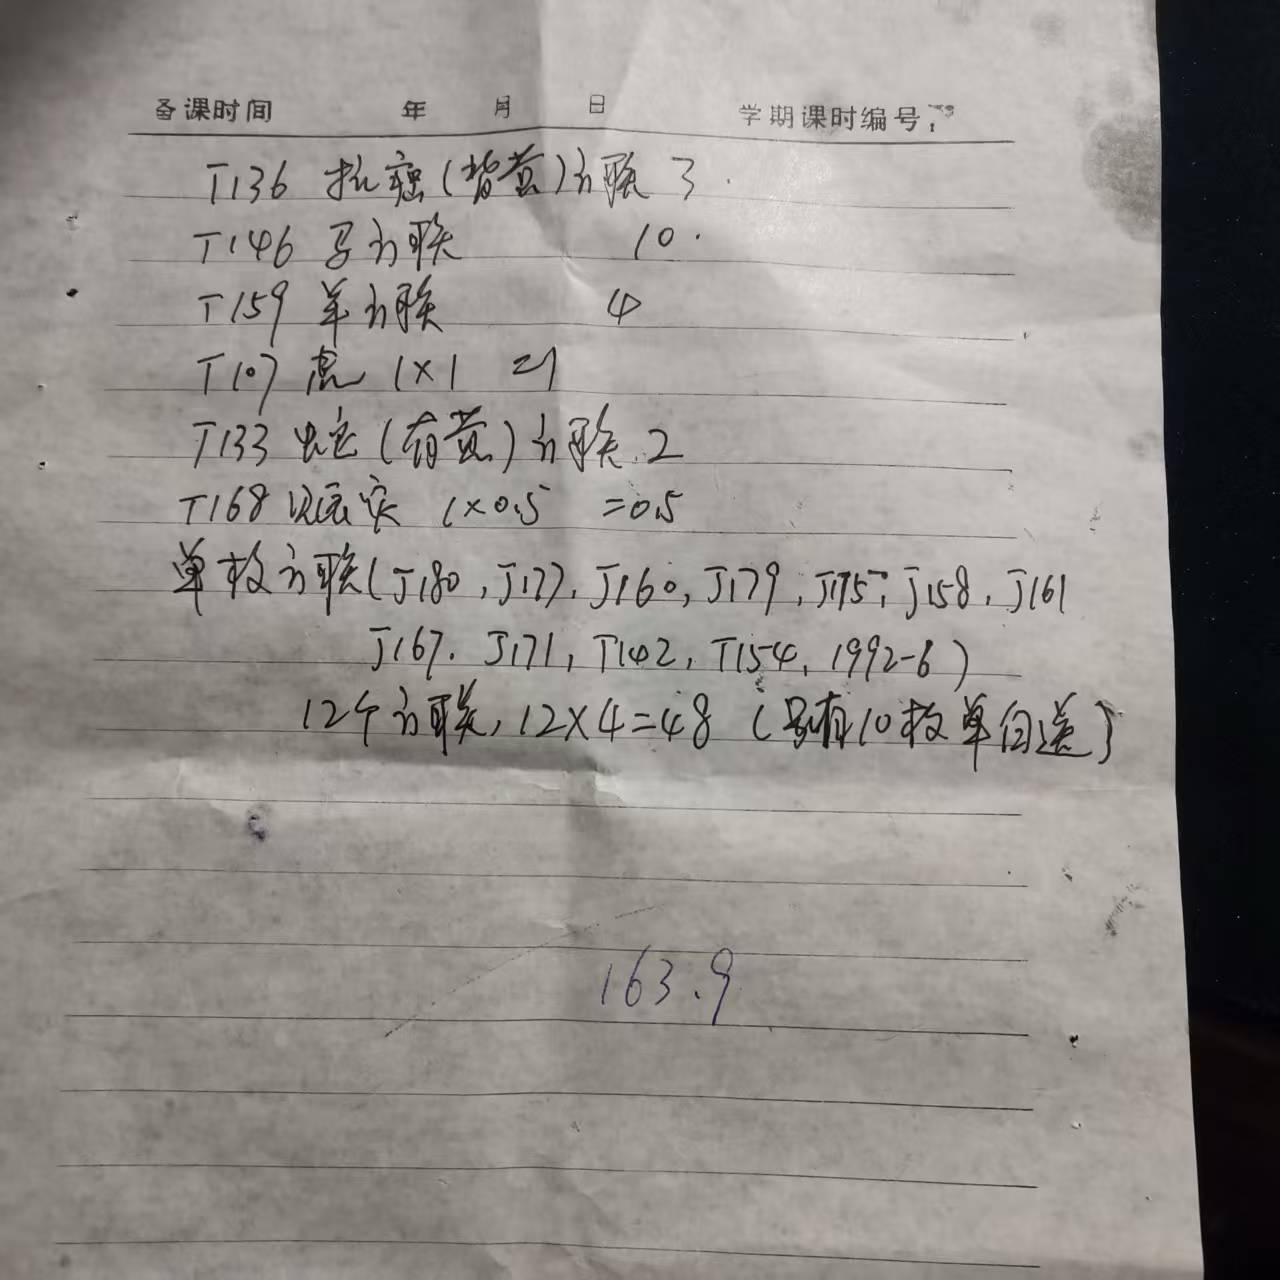 备课时间 年 月 日 学期课时编号:
T136 抗癌(背黄)方联 3
T146 马方联 10.
T159 羊方联 4
T107 虎 1×1 =1
T133 蛇(背黄)方联 2
T168 1×0.5 =0.5
单枚方联(J180,J177,J160,J179,J175,J158,J161
J167,J171,T142,T154,1992-6)
12个方联,12×4=48 (另有10枚单白送)
163.9